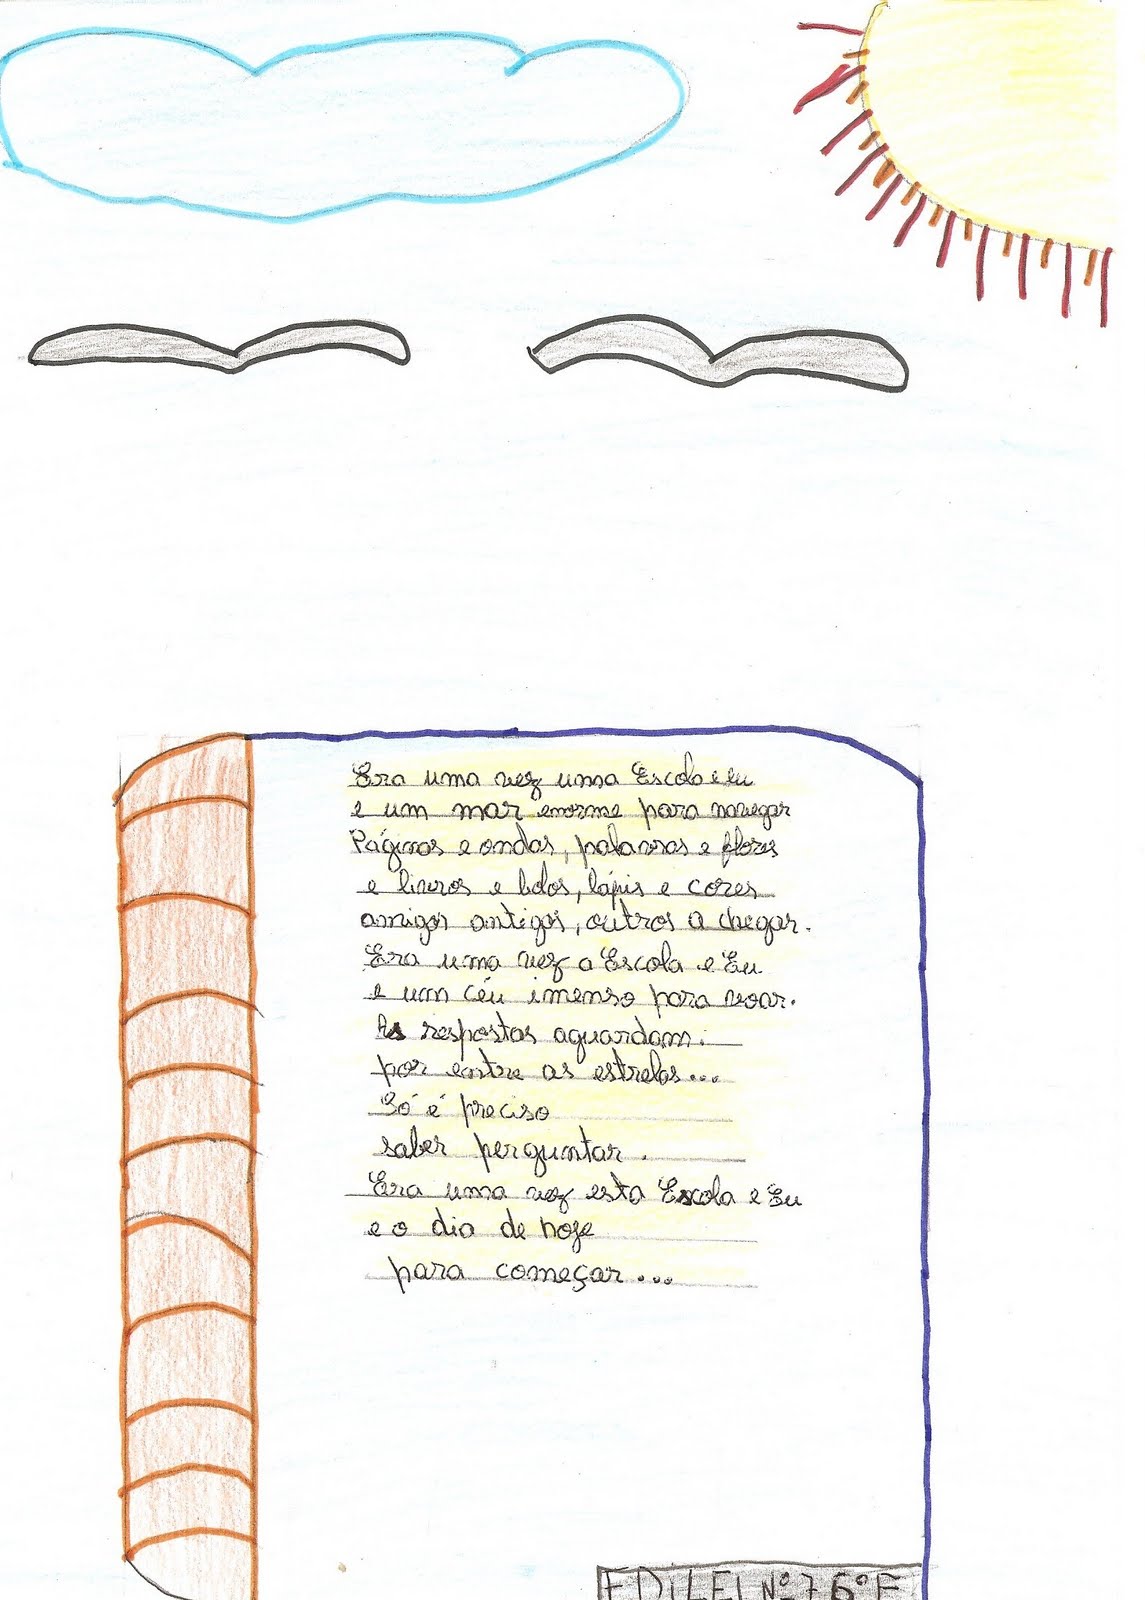 Era uma vez uma Escola e eu
e um mar enorme para navegar
Páginas e ondas, palavras e flores
e livros e bolos, lápis e cores
amigos antigos, outros a chegar.
Era uma vez a Escola e Eu
e um céu imenso para voar.
As respostas aguardam.
por entre as estrelas...
Só é preciso
saber perguntar.
Era uma vez esta Escola e Eu
e o dia de hoje
para começar...
EDILEI Nº 7 6º E